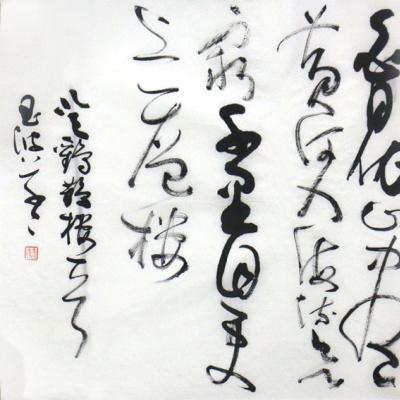 白日依山尽
黄河入海流欲
穷千里目更
上一层楼
登鹳鹊楼
玉波